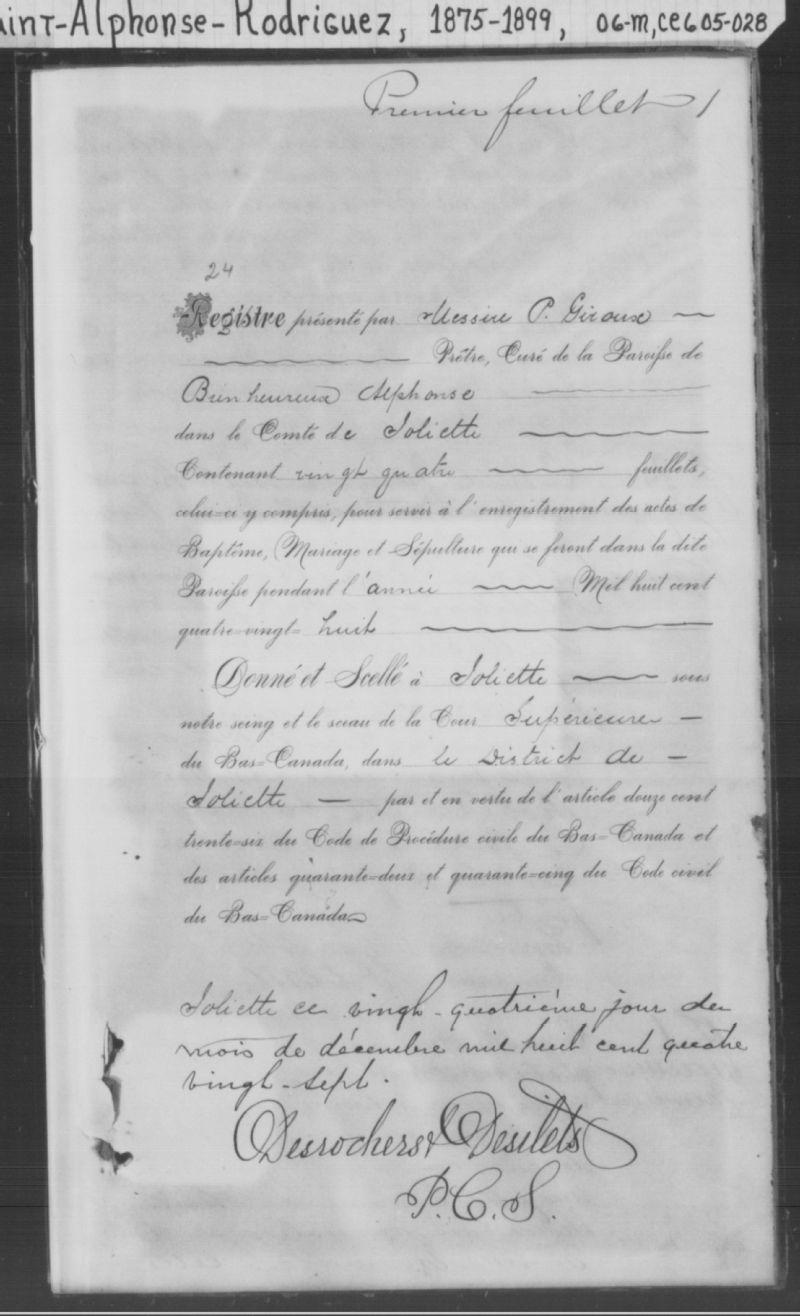 aint-Alphonse-Rodriguez, 1875-1899, 06-M,CE605-028
Premier feuillet 1
24
Registre présenté par Messire P. Giroux
Prêtre, Curé de la Paroisse de
Bienheureux Alphonse
dans le Comté de Joliette
Contenant vingt quatre feuillets,
celui=ci y compris, pour servir à l'enregistrement des actes de
Baptême, Mariage et Sépulture qui se feront dans la dite
Paroisse pendant l'année Mil huit cent
quatre=vingt= huit
Donné et Scellé à Joliette sous
notre seing et le sceau de la Cour Supérieure
du Bas=Canada, dans le District de
Joliette par et en vertu de l'article douze cent
trente=six du Code de Procédure civile du Bas=Canada et
des articles quarante=deux et quarante=cinq du Code civil
du Bas=Canada
Joliette ce vingt-quatrième jour du
mois de décembre mil huit cent quatre
vingt-sept.
Desrochers & Desilets
P.C.S.